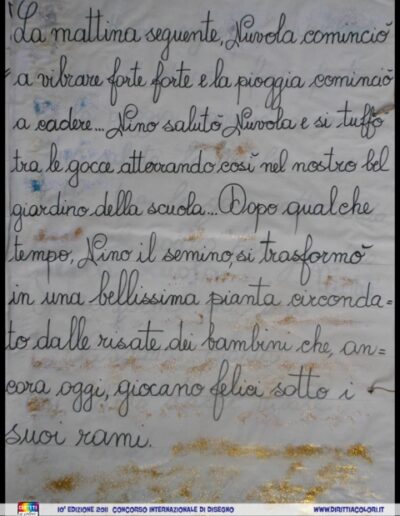 La mattina seguente, Nuvola cominciò
a vibrare forte forte e la pioggia cominciò
a cadere... Nino salutò Nuvola e si tuffò
tra le gocce atterrando così nel nostro bel
giardino della scuola... Dopo qualche
tempo, Nino il semino, si trasformò
in una bellissima pianta circonda=
to dalle risate dei bambini che, an=
cora oggi, giocano felici sotto i
suoi rami.
10° EDIZIONE 2011 CONCORSO INTERNAZIONALE DI DISEGNO WWW.DIRITTIACOLORI.IT